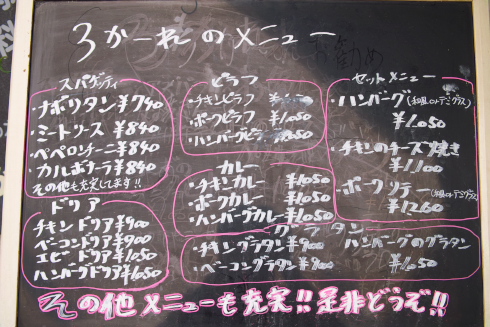 3かーれのメニュー
スパゲッティ
・ナポリタン ¥740
・ミートソース ¥840
・ペペロンチーニ ¥840
・カルボナーラ ¥840
その他も充実してます!!
ドリア
チキンドリア ¥900
ベーコンドリア ¥900
エビードリア ¥1050
ハンバーグドリア ¥1050
ピラフ
・チキンピラフ
・ポークピラフ ¥1.050
・ハンバーグピラフ
カレー
・チキンカレー ¥1050
・ポークカレー ¥1050
・ハンバーグカレー ¥1.050
セットメニュー
・ハンバーグ(和風orデミグラス)
¥1.050
・チキンのチーズ焼き
¥1,100
・ポークソテー(和風orデミグラス)
¥1260
グラタン
・チキングラタン ¥900
・ベーコングラタン ¥900
ハンバーグのグラタン
¥1050
その他メニューも充実!!是非どうぞ!!